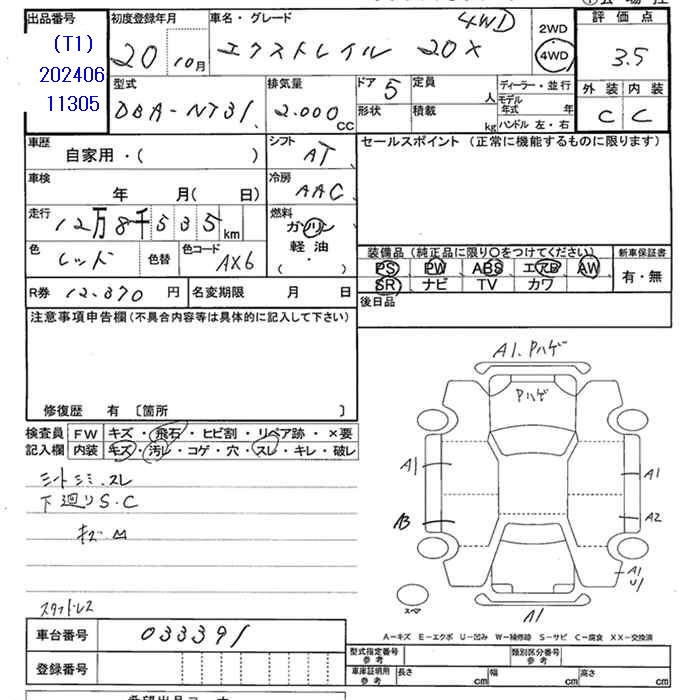 出品番号
(T1)
202406
11305
初度登録年月
20 10月
車名・グレード
4WD
エクストレイル 20X
2WD
4WD
評価点
3.5
外装 内装
C C
型式
DBA-NT31
排気量
2.000
CC
ドア 5
形状
定員
人
積載
kg
ディーラー・並行
モデル年式 年
ハンドル 左・右
車歴
自家用・( )
シフト
AT
車検
年 月( 日)
冷房
AAC
走行
12万8千535km
燃料
ガソリン
軽油
( ・ )
色
レッド
色替
色コード
AX6
セールスポイント (正常に機能するものに限ります)
装備品 (純正品に限り○をつけてください)
PS PW ABS エアB AW
SR ナビ TV カワ
新車保証書
有・無
R券 12.370 円
名変期限 月 日
後日品
注意事項申告欄(不具合内容等は具体的に記入して下さい)
修復歴 有 [箇所 ]
検査員
記入欄
FW キズ・飛石・ヒビ割・リペア跡・×要
内装 キズ・汚レ・コゲ・穴・スレ・キレ・破レ
シート シミ.スレ
下廻りS・C
キズ M
スタットレス
A1.Pハゲ
Pハゲ
A1
A1
AB
A2
A1
U1
スペア
A1
A-キズ E-エクボ U-凹み W-補修跡 S-サビ C-腐食 XX-交換済
車台番号 033391
登録番号
型式指定番号
参考
類別区分番号
参考
車庫証明用
参考
長さ cm
幅 cm
高さ cm